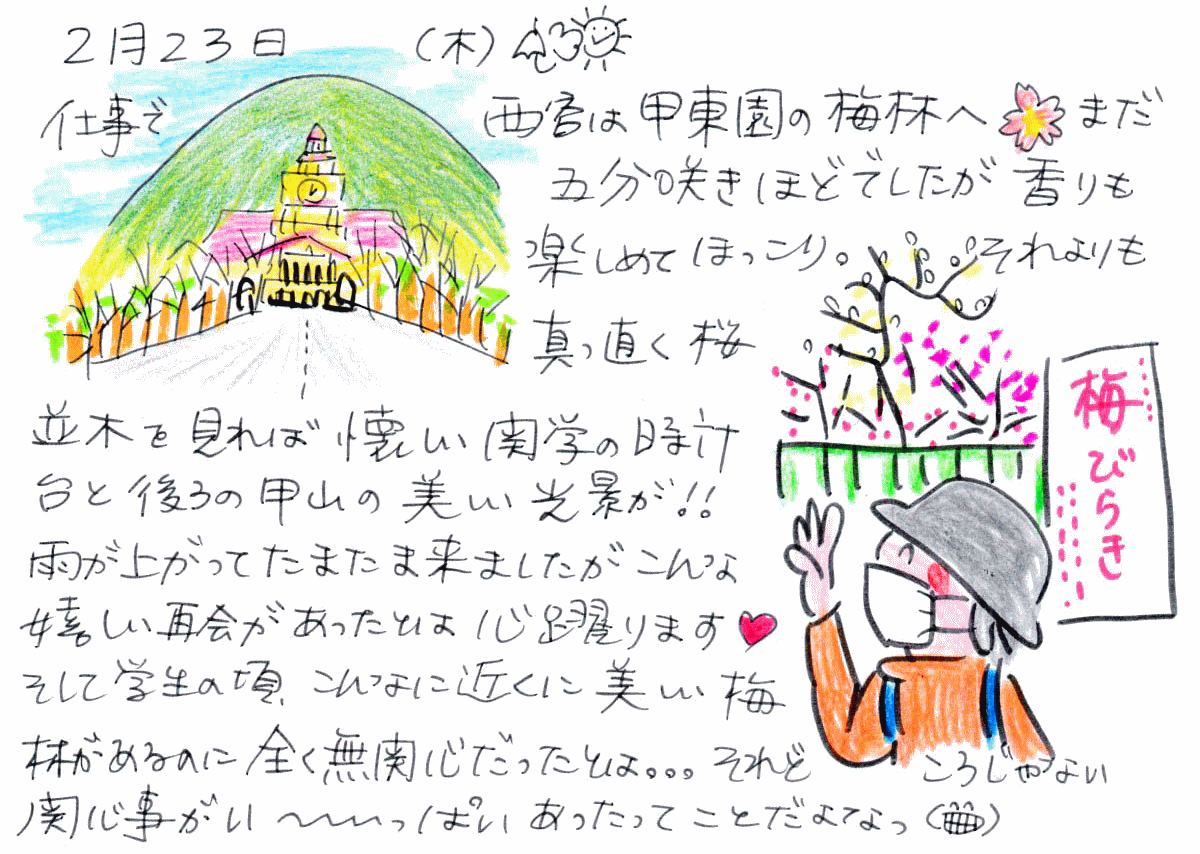 2月23日 (木)
仕事で 西宮は甲東園の梅林へ まだ
五分咲きほどでしたが香りも
楽しめてほっこり。それよりも
真っ直ぐ桜
並木を見れば懐しい関学の時計
台と後ろの甲山の美しい光景が!!
雨が上がってたまたま来ましたがこんな
嬉しい再会があったとは心躍ります
そして学生の頃、こんなに近くに美しい梅
林があるのに全く無関心だったとは。。。それど ころじゃない
関心事がい〜〜っぱいあったってことだよなっ
梅びらき